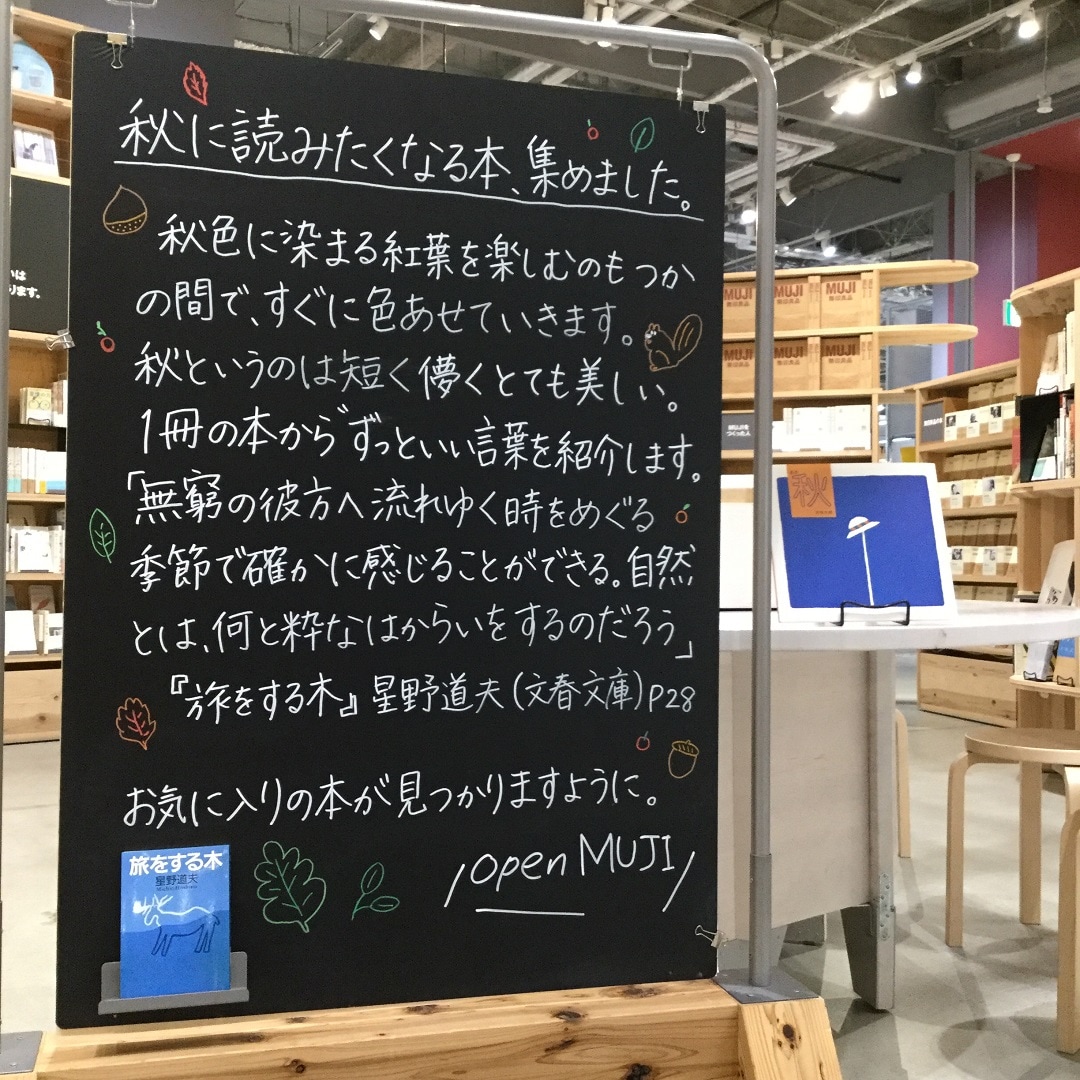 秋に読みたくなる本、集めました。
秋色に染まる紅葉を楽しむのもつか
の間で、すぐに色あせていきます。
秋というのは短く儚くとても美しい。
1冊の本から ずっといい言葉を紹介します。
「無窮の彼方へ流れゆく時をめぐる
季節で確かに感じることができる。自然
とは、何と粋なはからいをするのだろう」
『旅をする木』星野道夫(文春文庫)P28
お気に入りの本が見つかりますように。
open MUJI
旅をする木
星野道夫
秋
MUJI
無印良品
MUJI
無印良品
MUJI
無印良品
MUJI
無印良品
MUJI
無印良品
MUJI
無印良品
MUJIを
つくった人